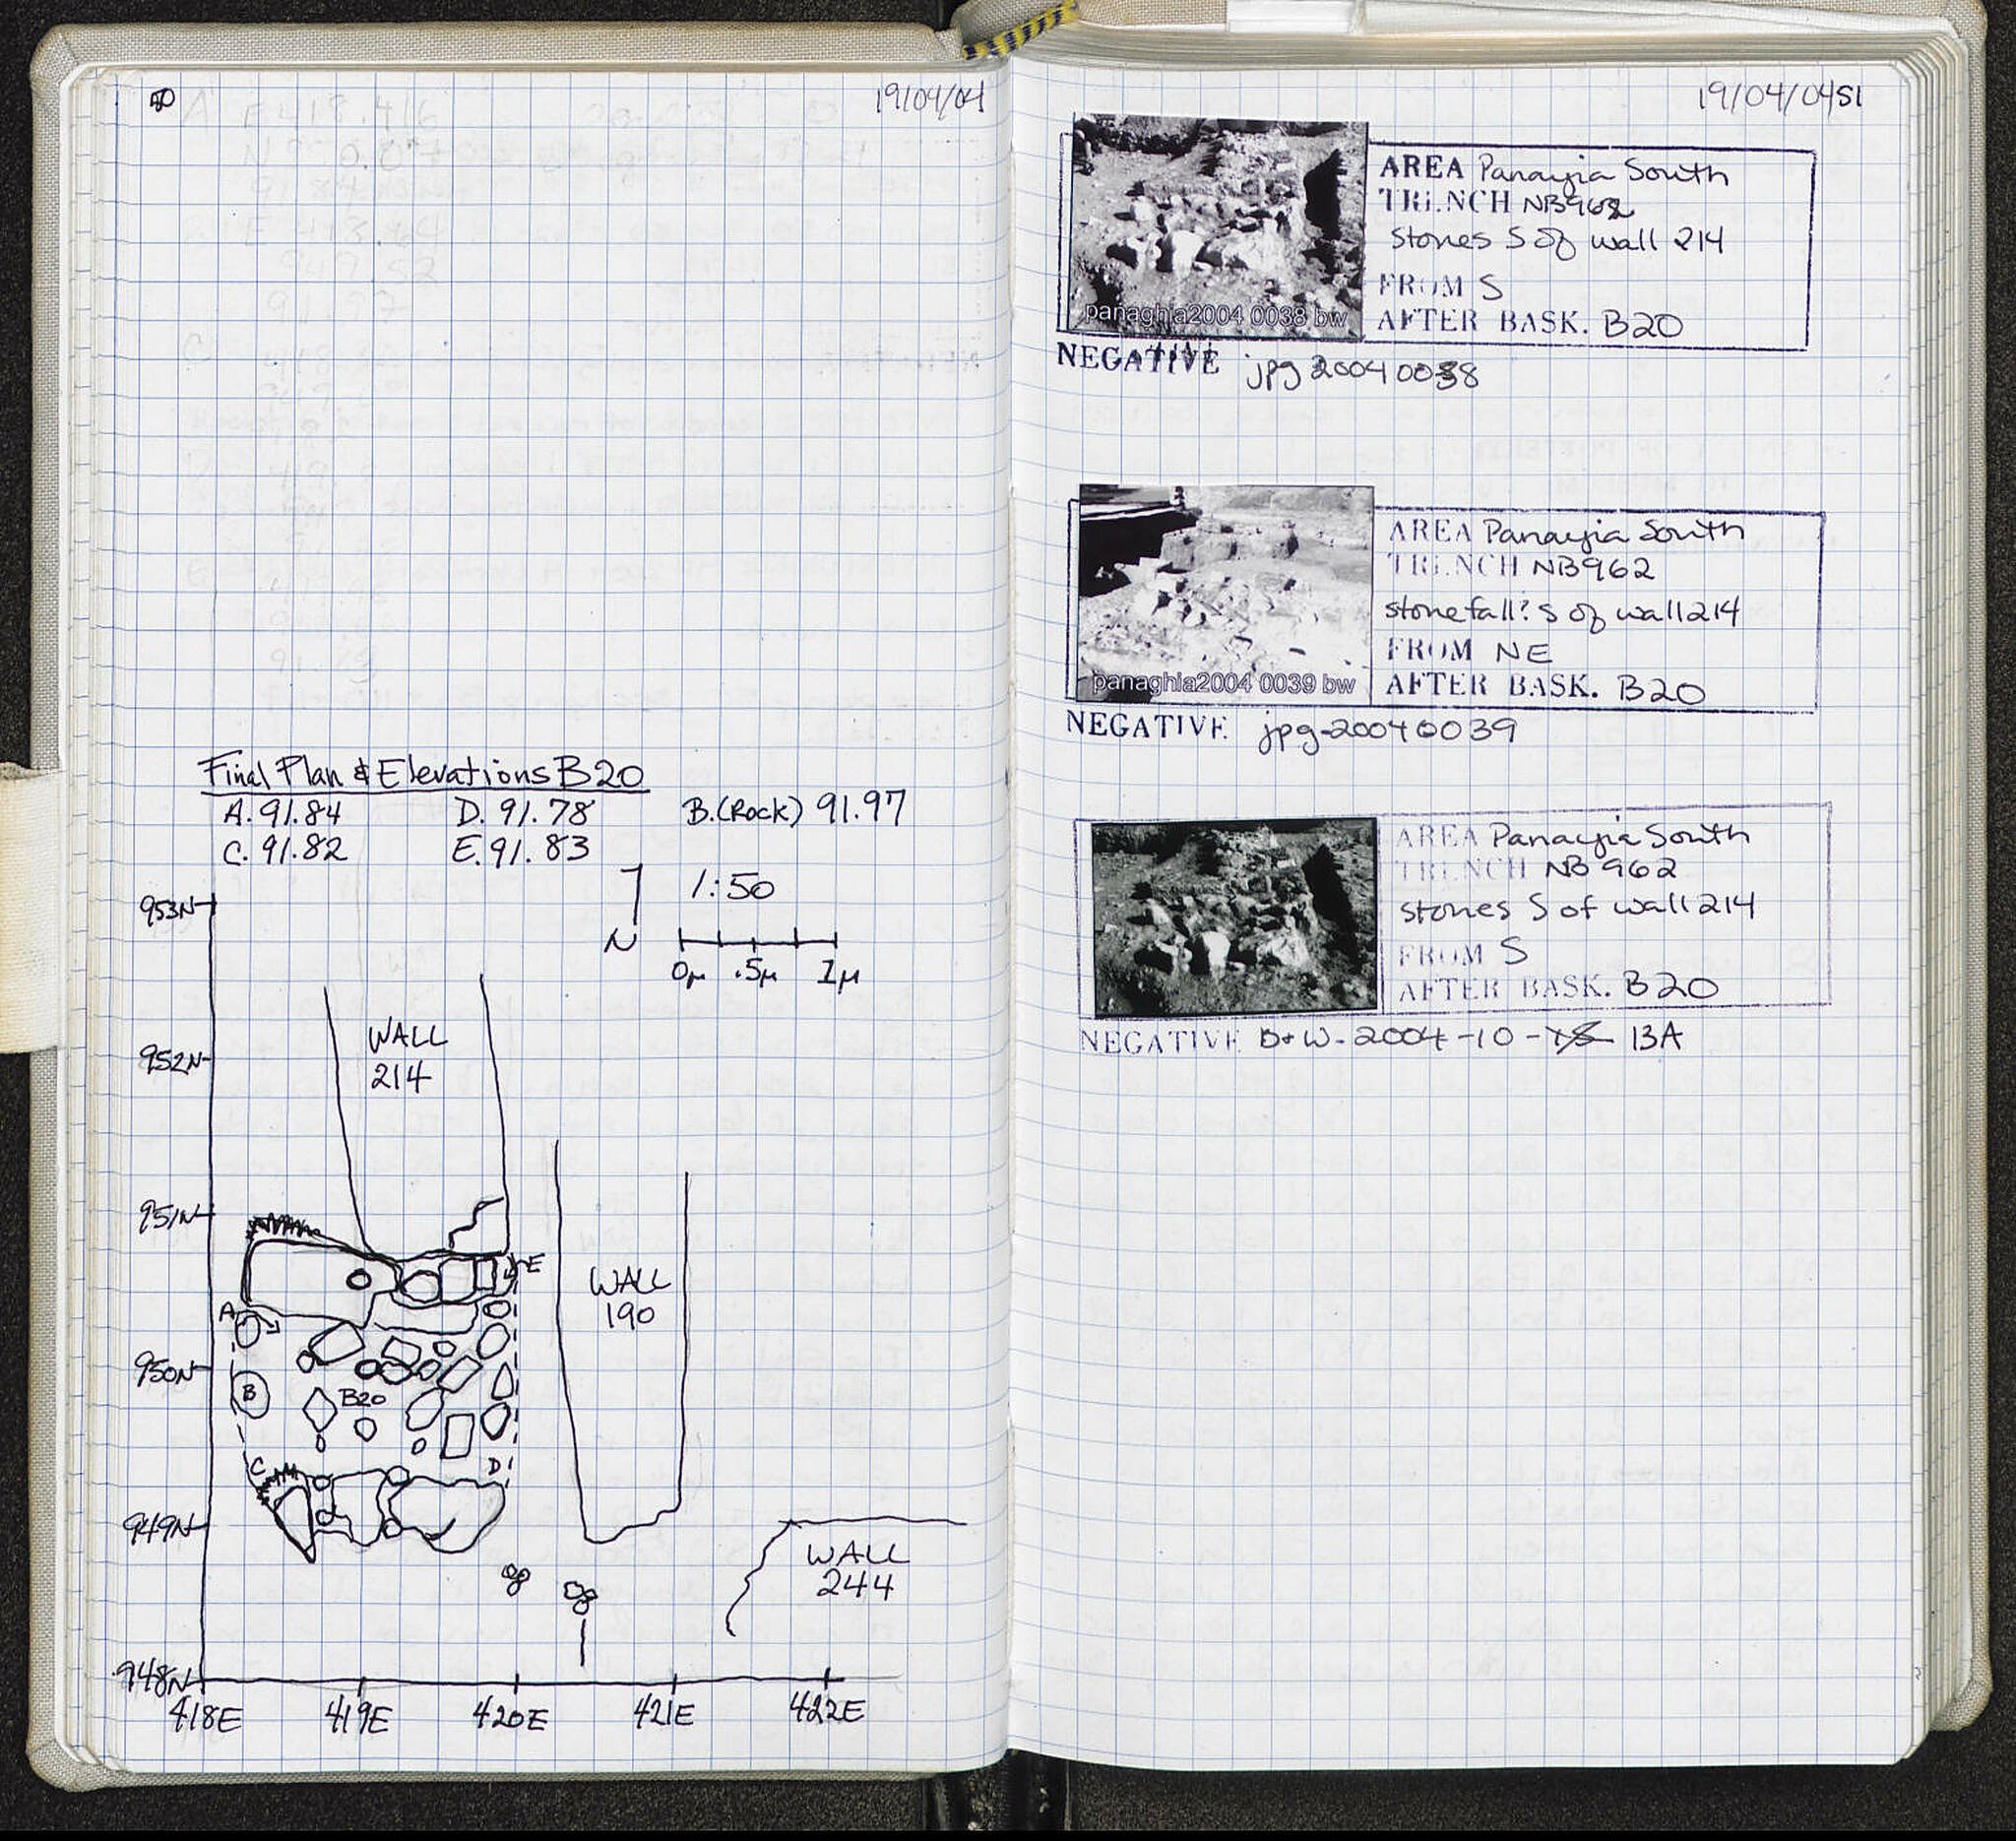 50
19/04/04
Final Plan & Elevations B20
A. 91.84 D. 91.78 B. (Rock) 91.97
C. 91.82 E. 91.83
1:50
N
0m .5m 1m
953N
952N
951N
950N
949N
948N
418E 419E 420E 421E 422E
WALL
214
WALL
190
WALL
244
E
A
B
B20
C
D
19/04/04 51
AREA Panayia South
TRENCH NB962
stones S of wall 214
FROM S
AFTER BASK. B20
panaghia2004 0038 bw
NEGATIVE jpg 2004 0038
AREA Panayia South
TRENCH NB962
stonefall? S of wall 214
FROM NE
AFTER BASK. B20
panaghia2004 0039 bw
NEGATIVE jpg-2004 0039
AREA Panayia South
TRENCH NB 962
stones S of wall 214
FROM S
AFTER BASK. B20
NEGATIVE B+W-2004-10- 13A